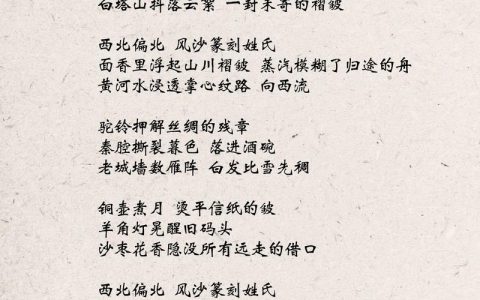 白塔山抖落云絮 一封未寄的褶皱
西北偏北 风沙篆刻姓氏
面香里浮起山川褶皱 蒸汽模糊了归途的舟
黄河水浸透掌心纹路 向西流
驼铃押解丝绸的残章
秦腔撕裂暮色 落进酒碗
老城墙数雁阵 白发比雪先稠
铜壶煮月 烫平信纸的皱
羊角灯晃醒旧码头
沙枣花香隐没所有远走的借口
西北偏北 风沙篆刻姓氏